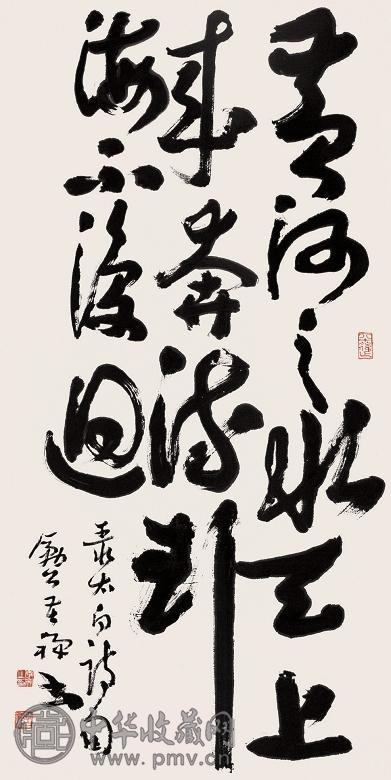 黄河之水天上
来奔流到
海不復迴
录太白詩句
书
中华收藏网
www.pmv.cn